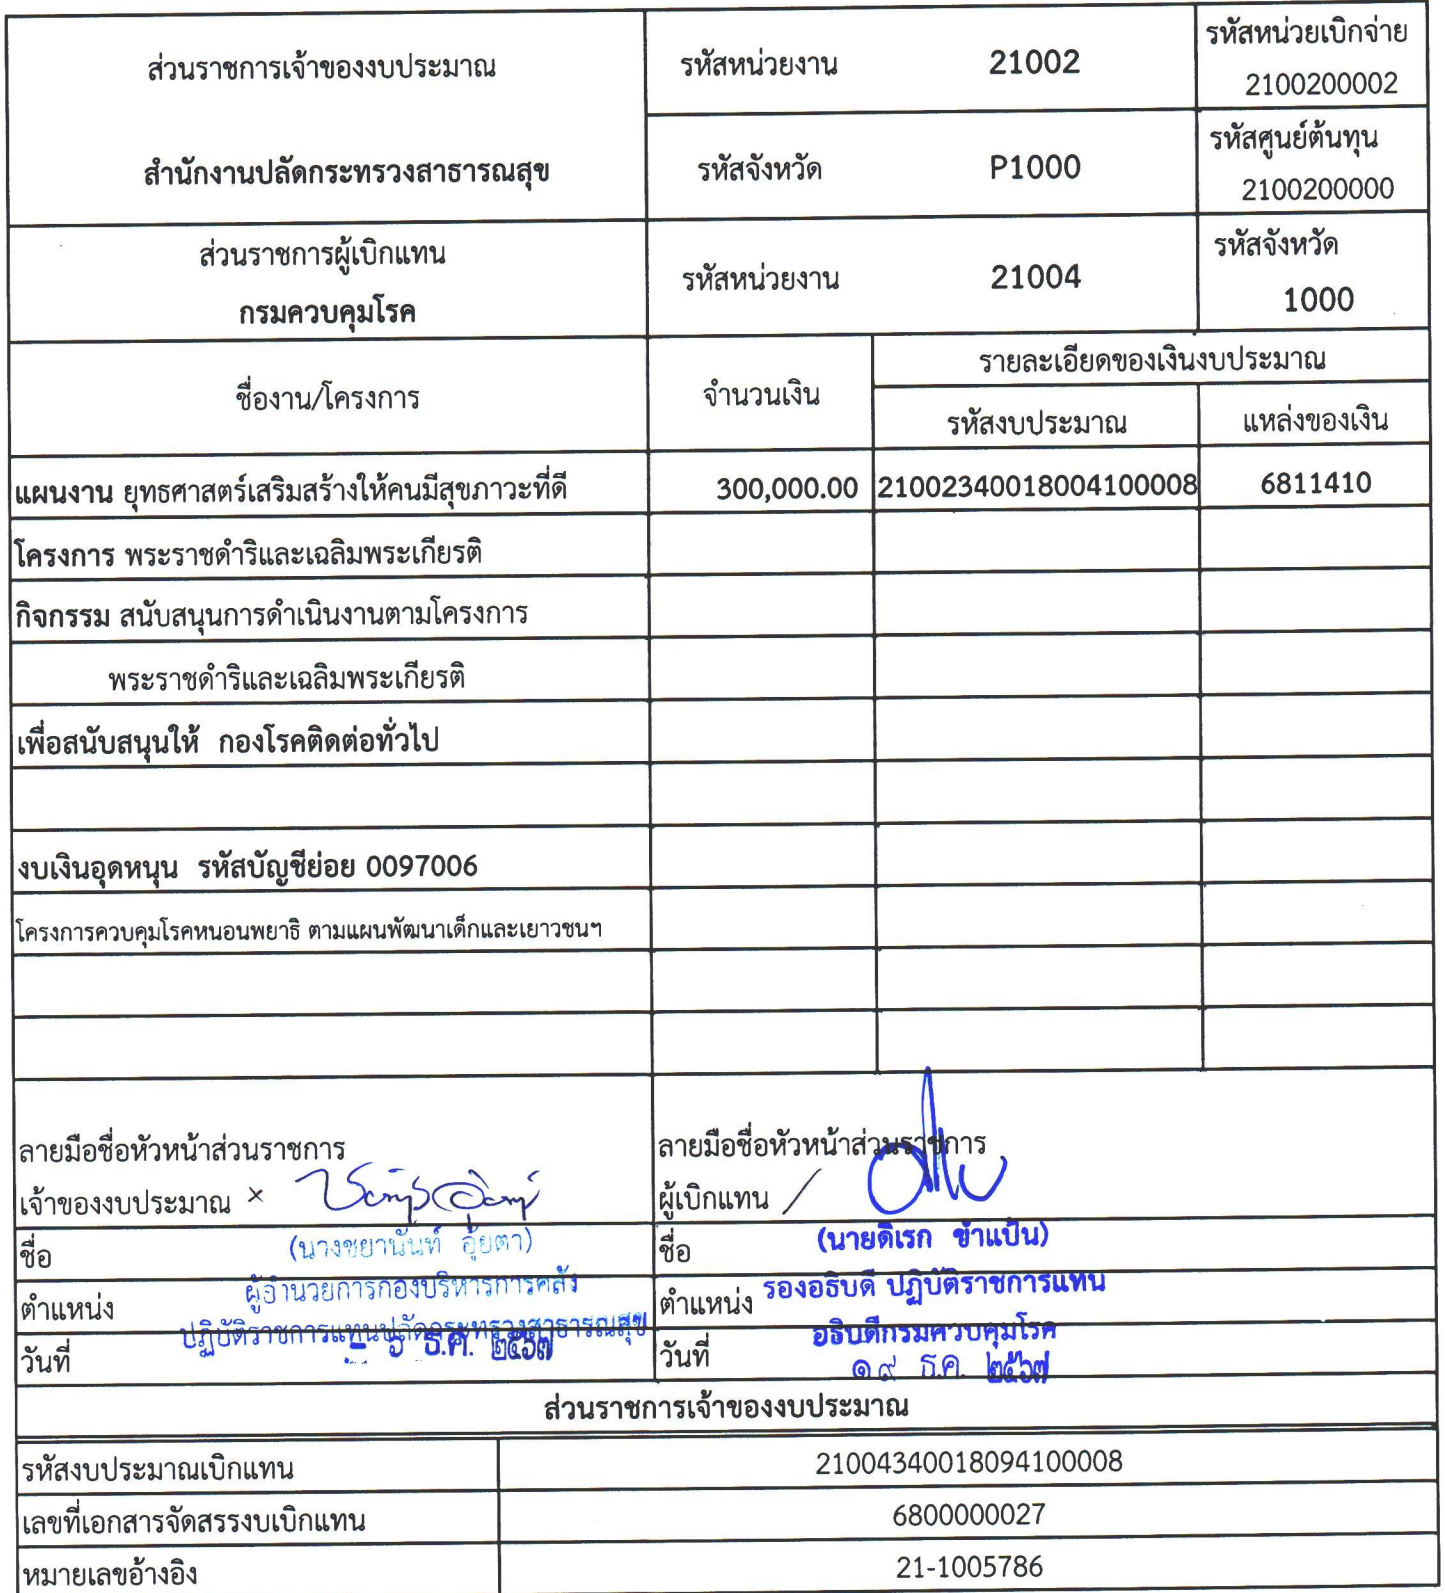 ส่วนราชการเจ้าของงบประมาณ
สำนักงานปลัดกระทรวงสาธารณสุข
รหัสหน่วยงาน 21002
รหัสหน่วยเบิกจ่าย
2100200002
รหัสจังหวัด P1000
รหัสศูนย์ต้นทุน
2100200000
ส่วนราชการผู้เบิกแทน
กรมควบคุมโรค
รหัสหน่วยงาน 21004
รหัสจังหวัด
1000
ชื่องาน/โครงการ
จำนวนเงิน
รายละเอียดของเงินงบประมาณ
รหัสงบประมาณ
แหล่งของเงิน
แผนงาน ยุทธศาสตร์เสริมสร้างให้คนมีสุขภาวะที่ดี 300,000.00 21002340018004100008 6811410
โครงการ พระราชดำริและเฉลิมพระเกียรติ
กิจกรรม สนับสนุนการดำเนินงานตามโครงการ
พระราชดำริและเฉลิมพระเกียรติ
เพื่อสนับสนุนให้ กองโรคติดต่อทั่วไป
งบเงินอุดหนุน รหัสบัญชีย่อย 0097006
โครงการควบคุมโรคหนอนพยาธิ ตามแผนพัฒนาเด็กและเยาวชนฯ
ลายมือชื่อหัวหน้าส่วนราชการ
เจ้าของงบประมาณ ×
ชื่อ (นางชยานันท์ อุ้ยตา)
ตำแหน่ง ผู้อำนวยการกองบริหารการคลัง
ปฏิบัติราชการแทนปลัดกระทรวงสาธารณสุข
วันที่ ธ.ค. ๒๕๖๗
ลายมือชื่อหัวหน้าส่วนราชการ
ผู้เบิกแทน /
ชื่อ (นายดิเรก ขำแป้น)
ตำแหน่ง รองอธิบดี ปฏิบัติราชการแทน
อธิบดีกรมควบคุมโรค
วันที่ ๑๙ ธ.ค. ๒๕๖๗
ส่วนราชการเจ้าของงบประมาณ
รหัสงบประมาณเบิกแทน 21004340018094100008
เลขที่เอกสารจัดสรรงบเบิกแทน 6800000027
หมายเลขอ้างอิง 21-1005786